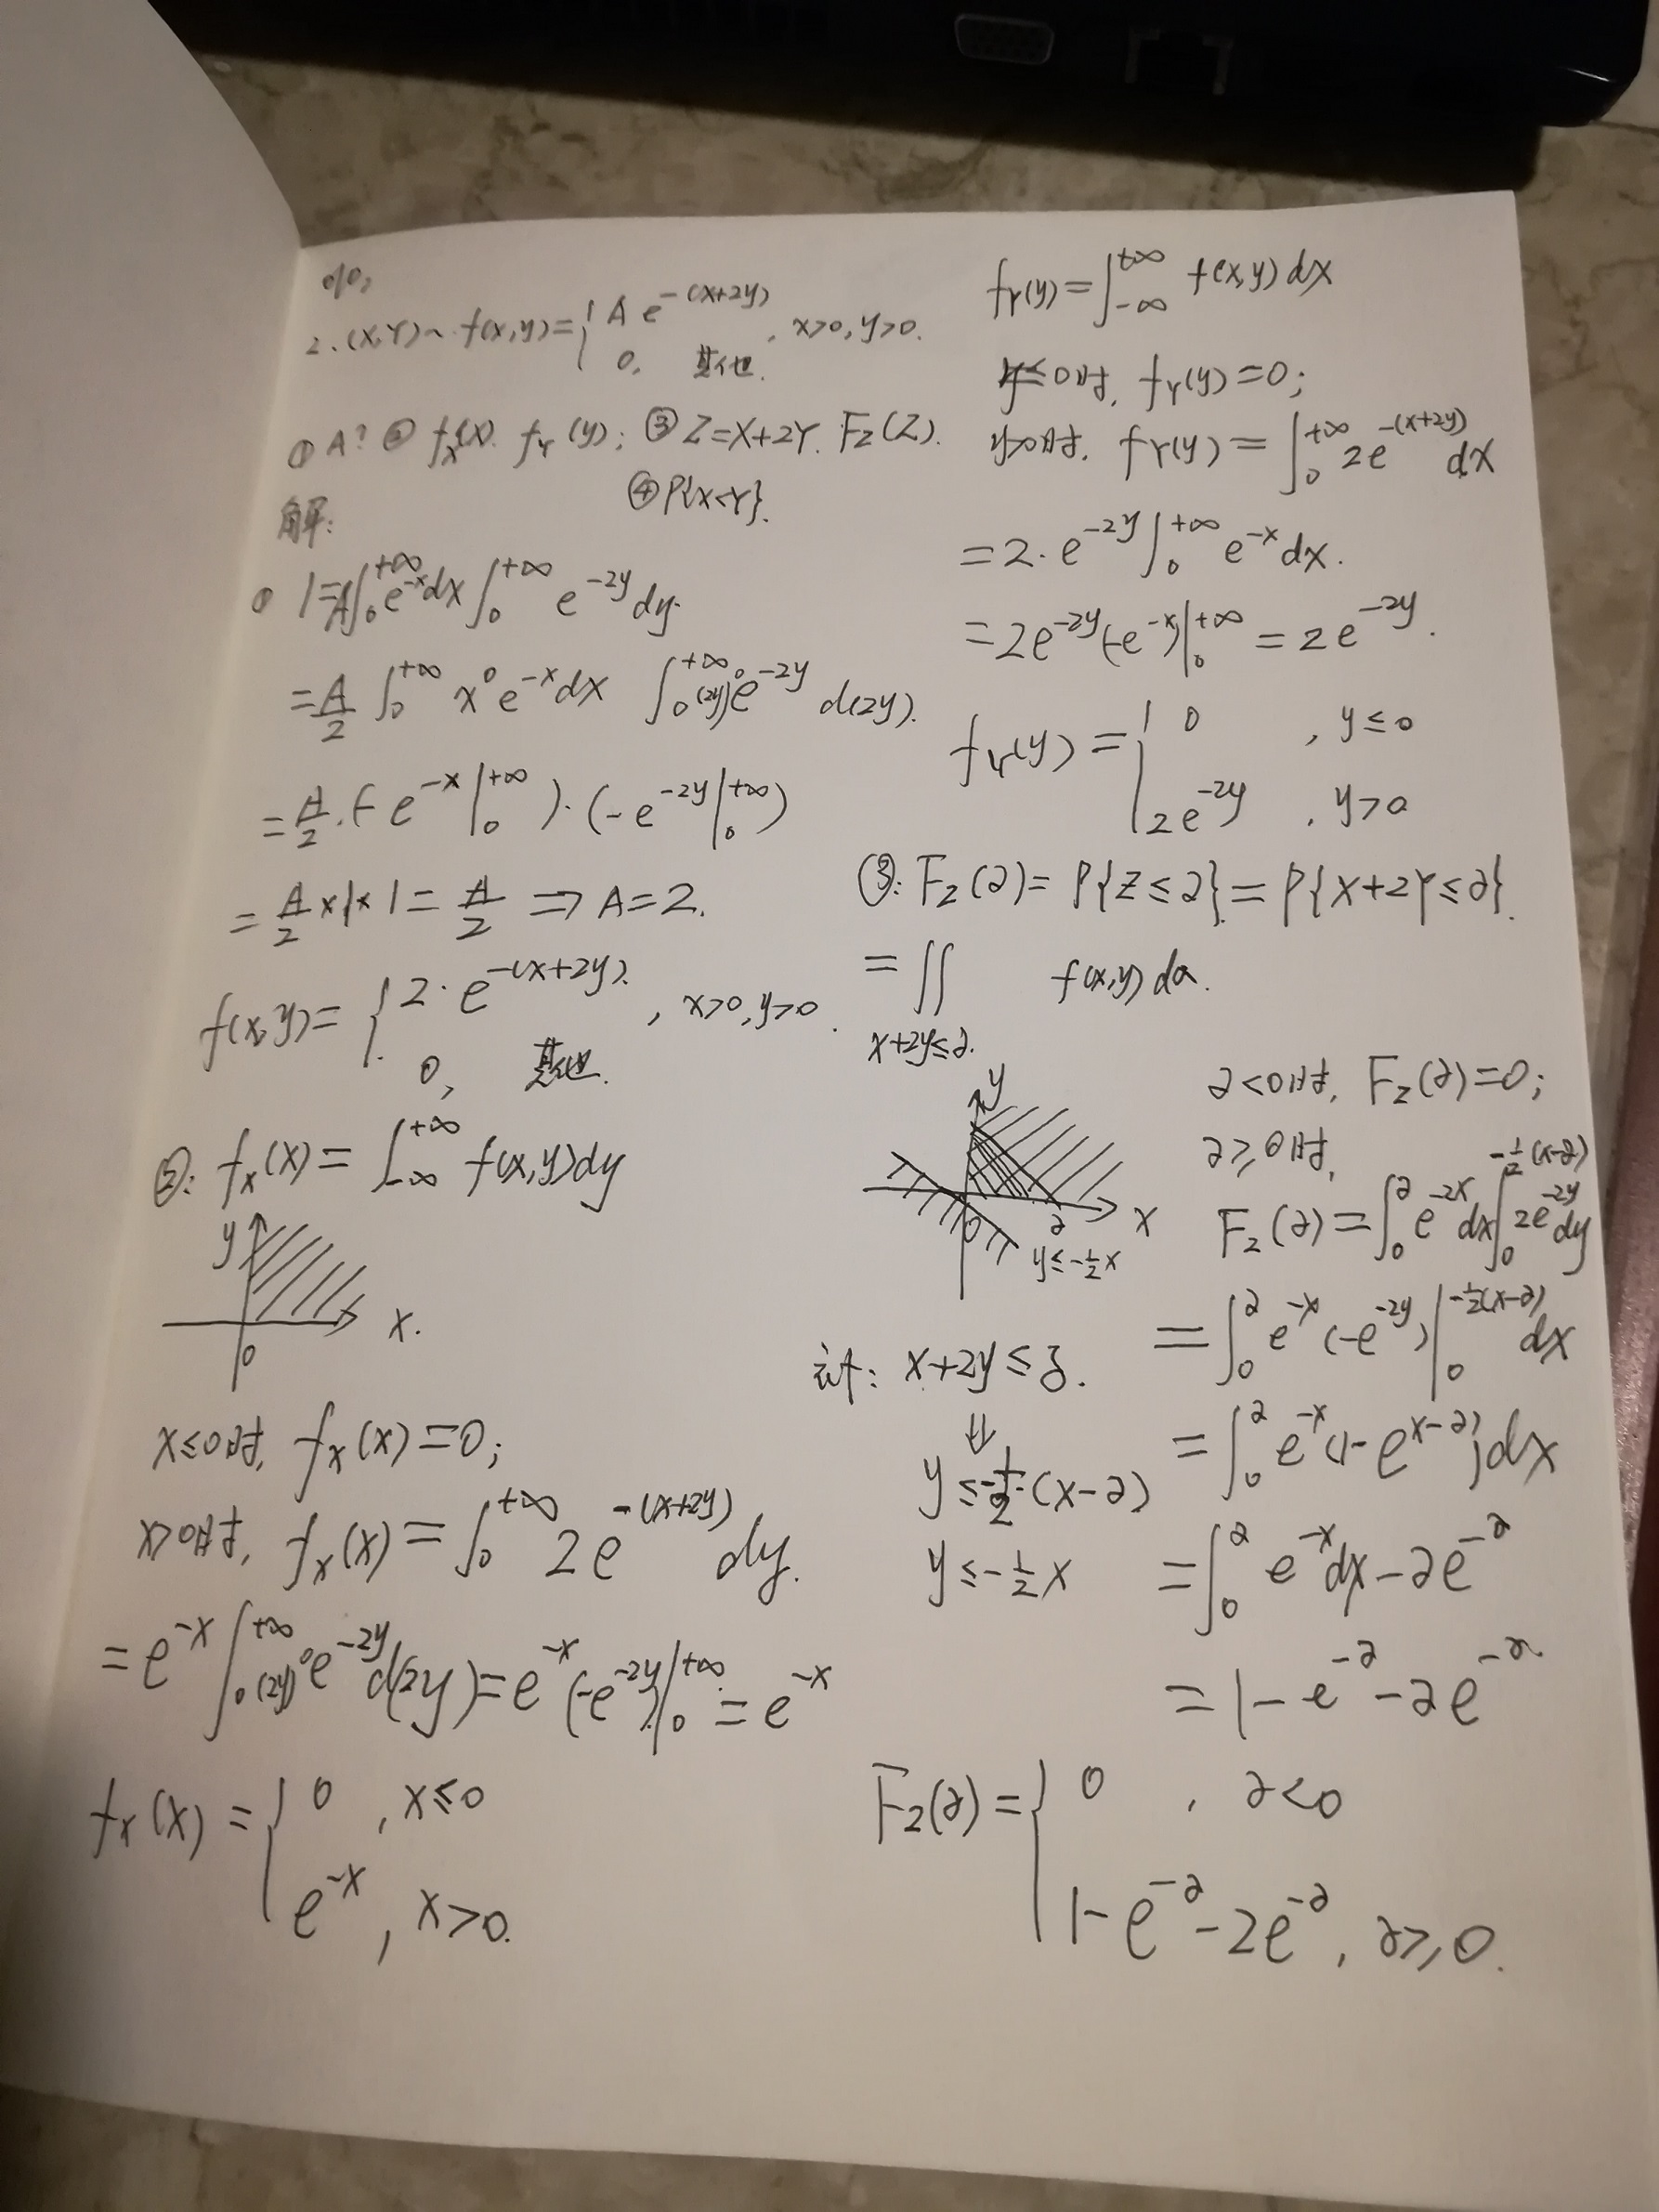 2. (X,Y)~f(x,y)={Ae^{-(x+2y)}, x>0,y>0.
0, 其他.
①A? ② f_X(x). f_Y(y); ③Z=X+2Y. F_Z(Z).
④P{X<Y}.
解:
① 1=A∫_0^{+∞}e^{-x}dx∫_0^{+∞}e^{-2y}dy.
=A/2 ∫_0^{+∞} x^0 e^{-x}dx ∫_0^{+∞}(2y)^0 e^{-2y} d(2y).
=A/2·(-e^{-x}|_0^{+∞})·(-e^{-2y}|_0^{+∞})
=A/2×1×1=A/2 ⇒A=2.
f(x,y)={2·e^{-(x+2y)}, x>0,y>0.
0, 其他.
②: f_X(x)=∫_{-∞}^{+∞}f(x,y)dy
y
x.
0
x≤0时, f_X(x)=0;
x>0时, f_X(x)=∫_0^{+∞}2e^{-(x+2y)}dy.
=e^{-x}∫_0^{+∞}(2y)^0 e^{-2y}d(2y)=e^{-x}(-e^{-2y})|_0^{+∞}=e^{-x}
f_X(x)={0, x≤0
e^{-x}, x>0.
f_Y(y)=∫_{-∞}^{+∞}f(x,y)dx
y≤0时, f_Y(y)=0;
y>0时, f_Y(y)=∫_0^{+∞}2e^{-(x+2y)}dx
=2·e^{-2y}∫_0^{+∞}e^{-x}dx.
=2e^{-2y}(-e^{-x})|_0^{+∞}=2e^{-2y}.
f_Y(y)={0, y≤0
2e^{-2y}, y>0
③: F_Z(z)=P{Z≤z}=P{X+2Y≤z}.
=∬_{x+2y≤z.} f(x,y)dσ.
y
x
0
z
y≤-1/2x
计: x+2y≤z.
⇓
y≤-1/2·(x-z)
y≤-1/2x
z<0时, F_Z(z)=0;
z≥0时,
F_Z(z)=∫_0^z e^{-2x}dx∫_0^{-1/2(x-z)}2e^{-2y}dy
=∫_0^z e^{-x}(-e^{-2y})|_0^{-1/2(x-z)}dx
=∫_0^z e^{-x}(1-e^{x-z})dx
=∫_0^z e^{-x}dx-ze^{-z}
=1-e^{-z}-ze^{-z}
F_Z(z)={0, z<0
1-e^{-z}-2e^{-z}, z≥0.